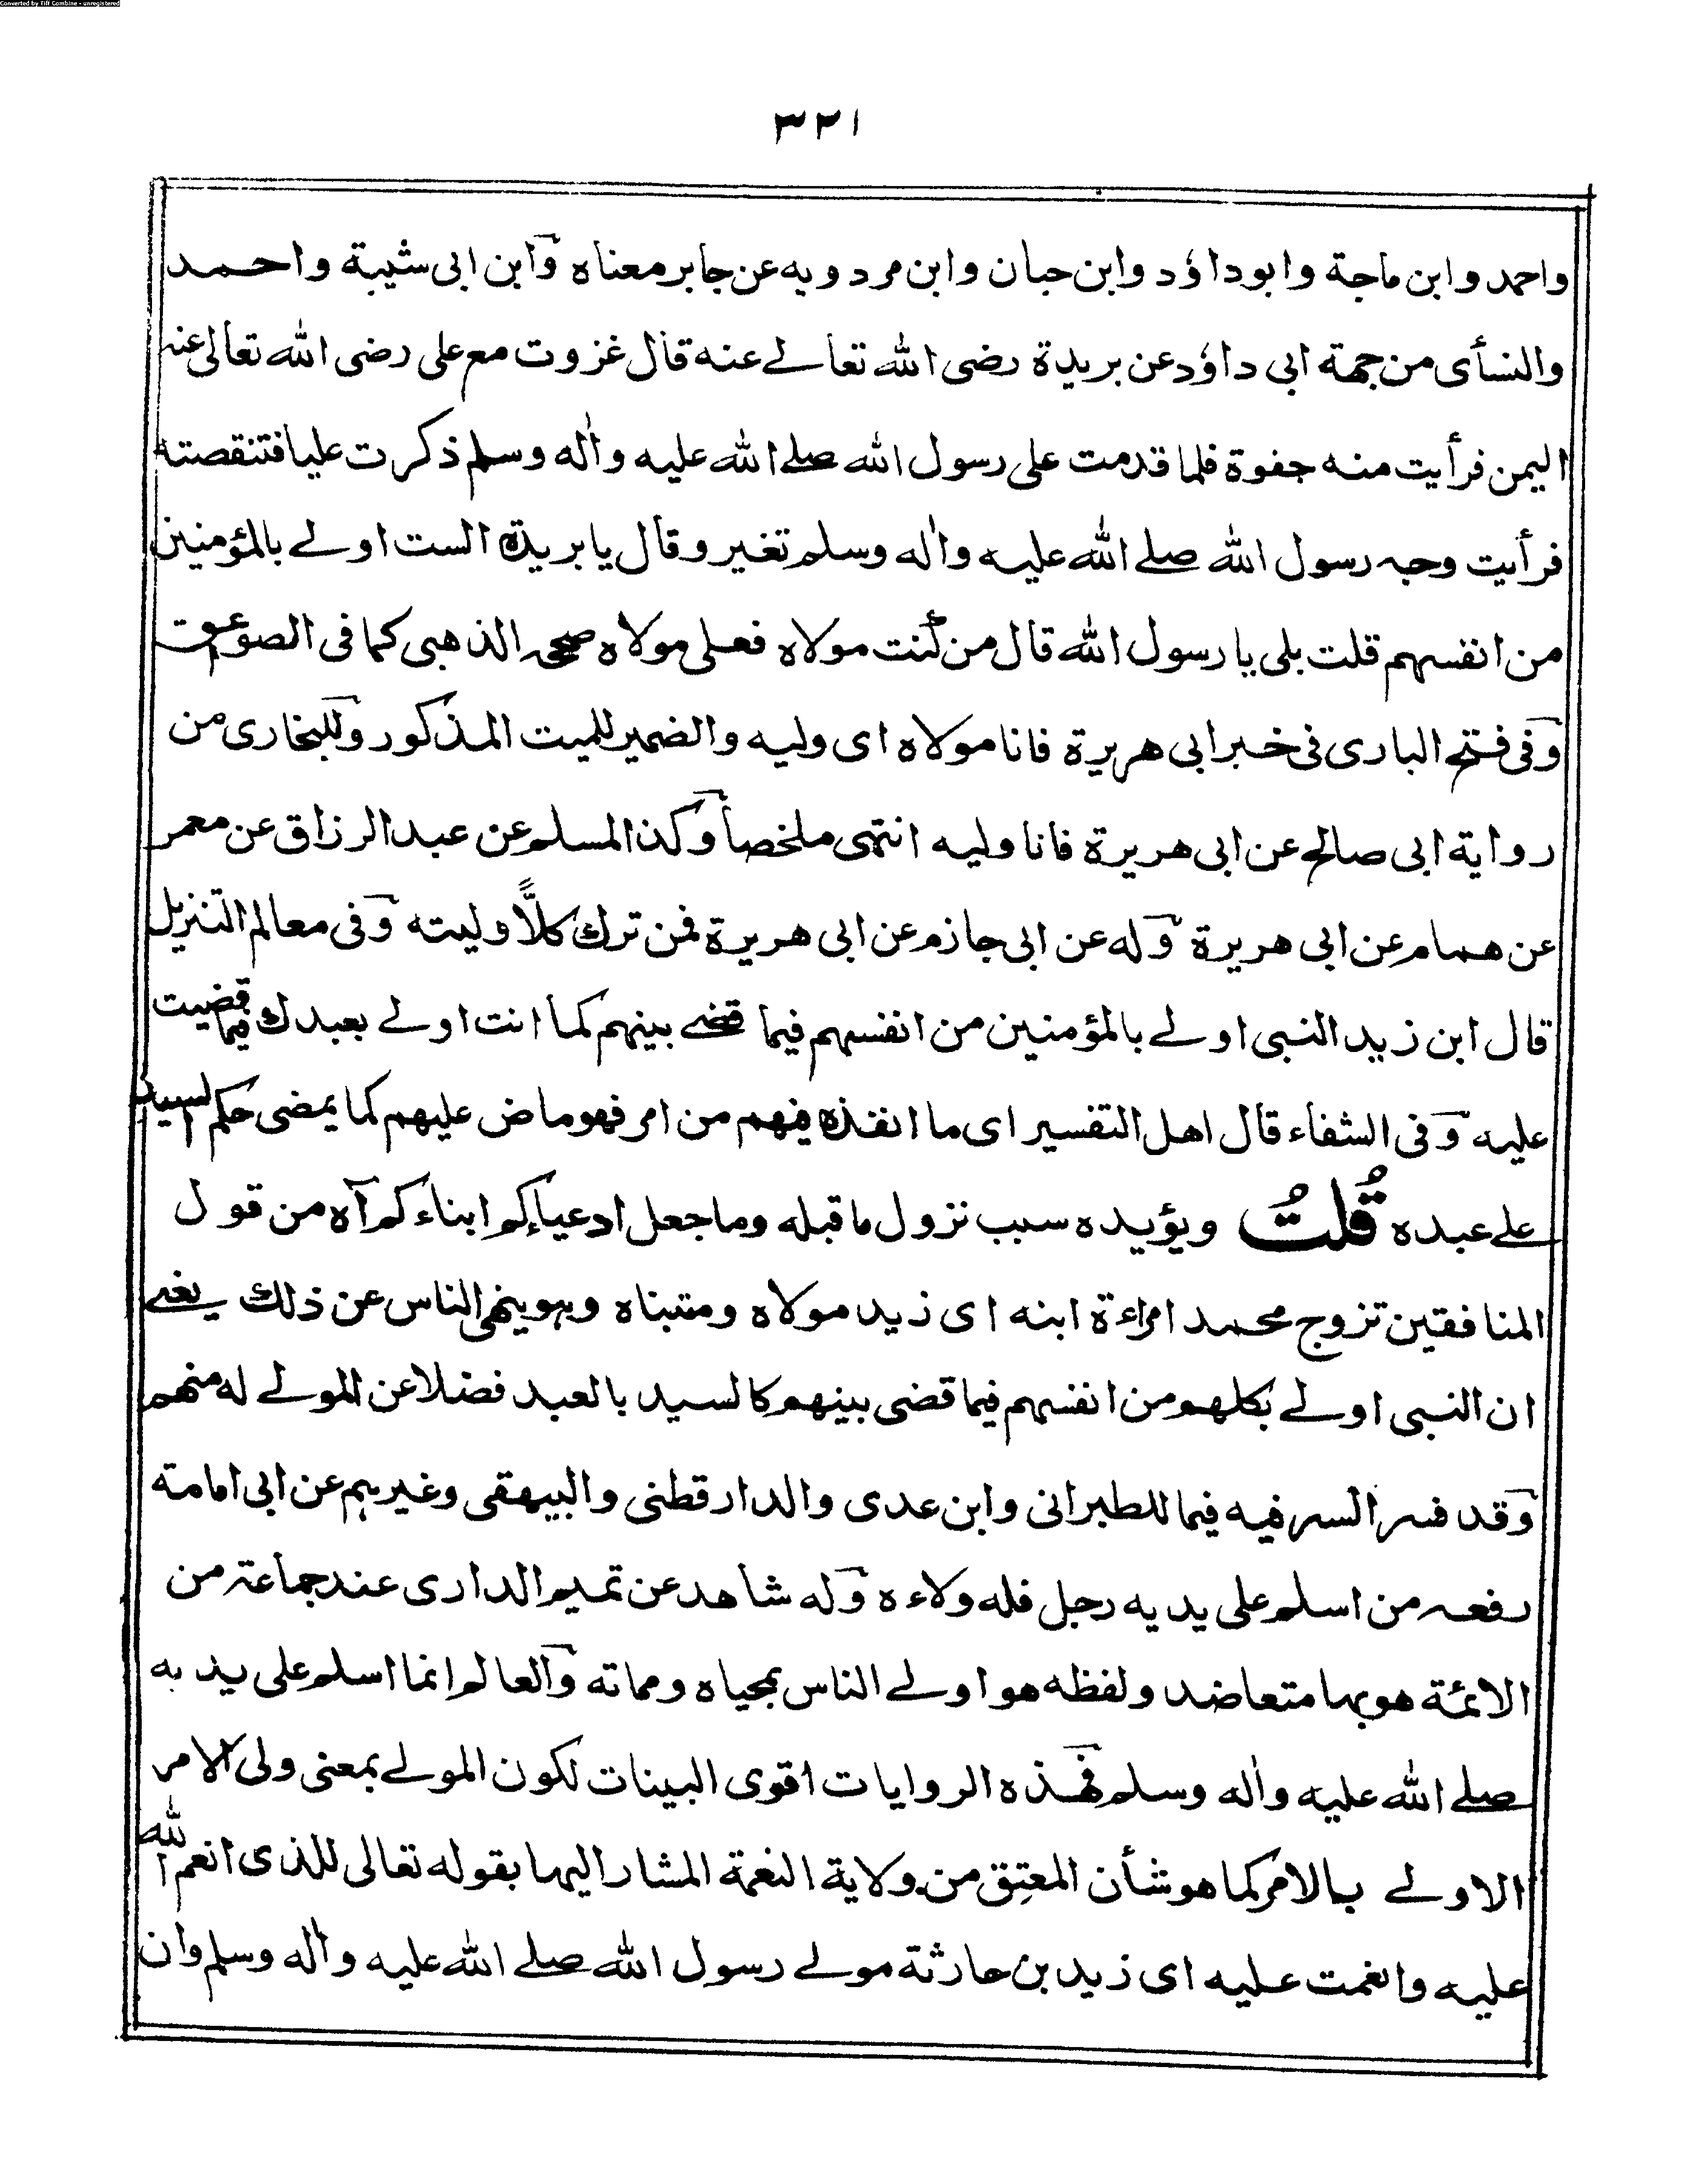 Converted by Tiff Combine - unregistered
٣٢١
واحمد وابن ماجة وابوداؤد وابن حبان وابن مردويه عن جابر معناه وابن ابى شيبة واحمد
والنسأى من جهة ابى داؤد عن بريدة رضى الله تعالے عنه قال غزوت مع على رضى الله تعالى عنه
اليمن فرأيت منه جفوة فلما قدمت على رسول الله صلے الله عليه واٰله وسلم ذكرت عليا فتنقصته
فرأيت وجه رسول الله صلے الله عليه واٰله وسلم تغير وقال يا بريدة الست اولے بالمؤمنين
من انفسهم قلت بلى يا رسول الله قال من كنت مولاه فعلى مولاه صححه الذهبى كما فى الصواعق
وفى فتح البارى فى خبر ابى هريرة فانا مولاه اى وليه والضمير للميت المذكور وللبخارى من
رواية ابى صالح عن ابى هريرة فانا وليه انتهى ملخصاً وكذا لمسلم عن عبد الرزاق عن معمر
عن همام عن ابى هريرة وله عن ابى حازم عن ابى هريرة فمن ترك كلاًّ وليته وفى معالم التنزيل
قال ابن زيد النبى اولے بالمؤمنين من انفسهم فيما قضے بينهم كما انت اولے بعبدك فيما قضيت
عليه وفى الشفاء قال اهل التفسير اى ما انفذه فيهم من امر فهو ماض عليهم كما يمضى حكم السيد
علے عبده قُلتُ ويؤيده سبب نزول ما قبله وما جعل ادعياءكم ابناءكم آه من قول
المنافقين تزوج محمد امراءة ابنه اى زيد مولاه ومتبناه وهو ينهى الناس عن ذلك يعنے
ان النبى اولے بكلهم من انفسهم فيما قضى بينهم كالسيد بالعبد فضلا عن المولے له منهم
وقد فسر السر فيه فيما للطبرانى وابن عدى والدارقطنى والبيهقى وغيرهم عن ابى امامة
رفعه من اسلم على يديه رجل فله ولاءه وله شاهد عن تميم الدارى عند جماعة من
الائمة هو بها متعاضد ولفظه هو اولے الناس بمحياه ومماته والعالم انما اسلم على يديه
صلے الله عليه واٰله وسلم فهذه الروايات اقوى البينات لكون المولے بمعنى ولى الامر
الاولے بالامر كما هو شأن المعتِق من ولاية النعمة المشار اليها بقوله تعالى للذى انعم الله
عليه وانعمت عليه اى زيد بن حارثة مولے رسول الله صلے الله عليه واٰله وسلم وان